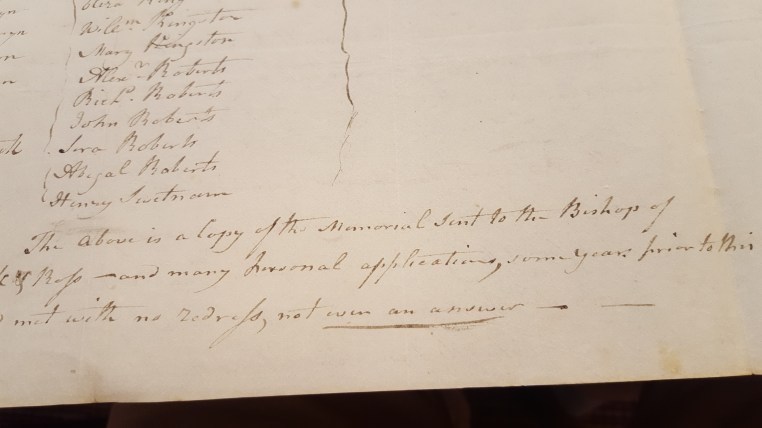 King
Will.m Kingston
Mary Kingston
Alex.r Roberts
Rich.d Roberts
John Roberts
Sera Roberts
Abigal Roberts
Henry Swetnam
The above is a Copy of the Memorial Sent to the Bishop of
Ross — and many personal applications, some years prior to this
met with no redress, not even an answer — —